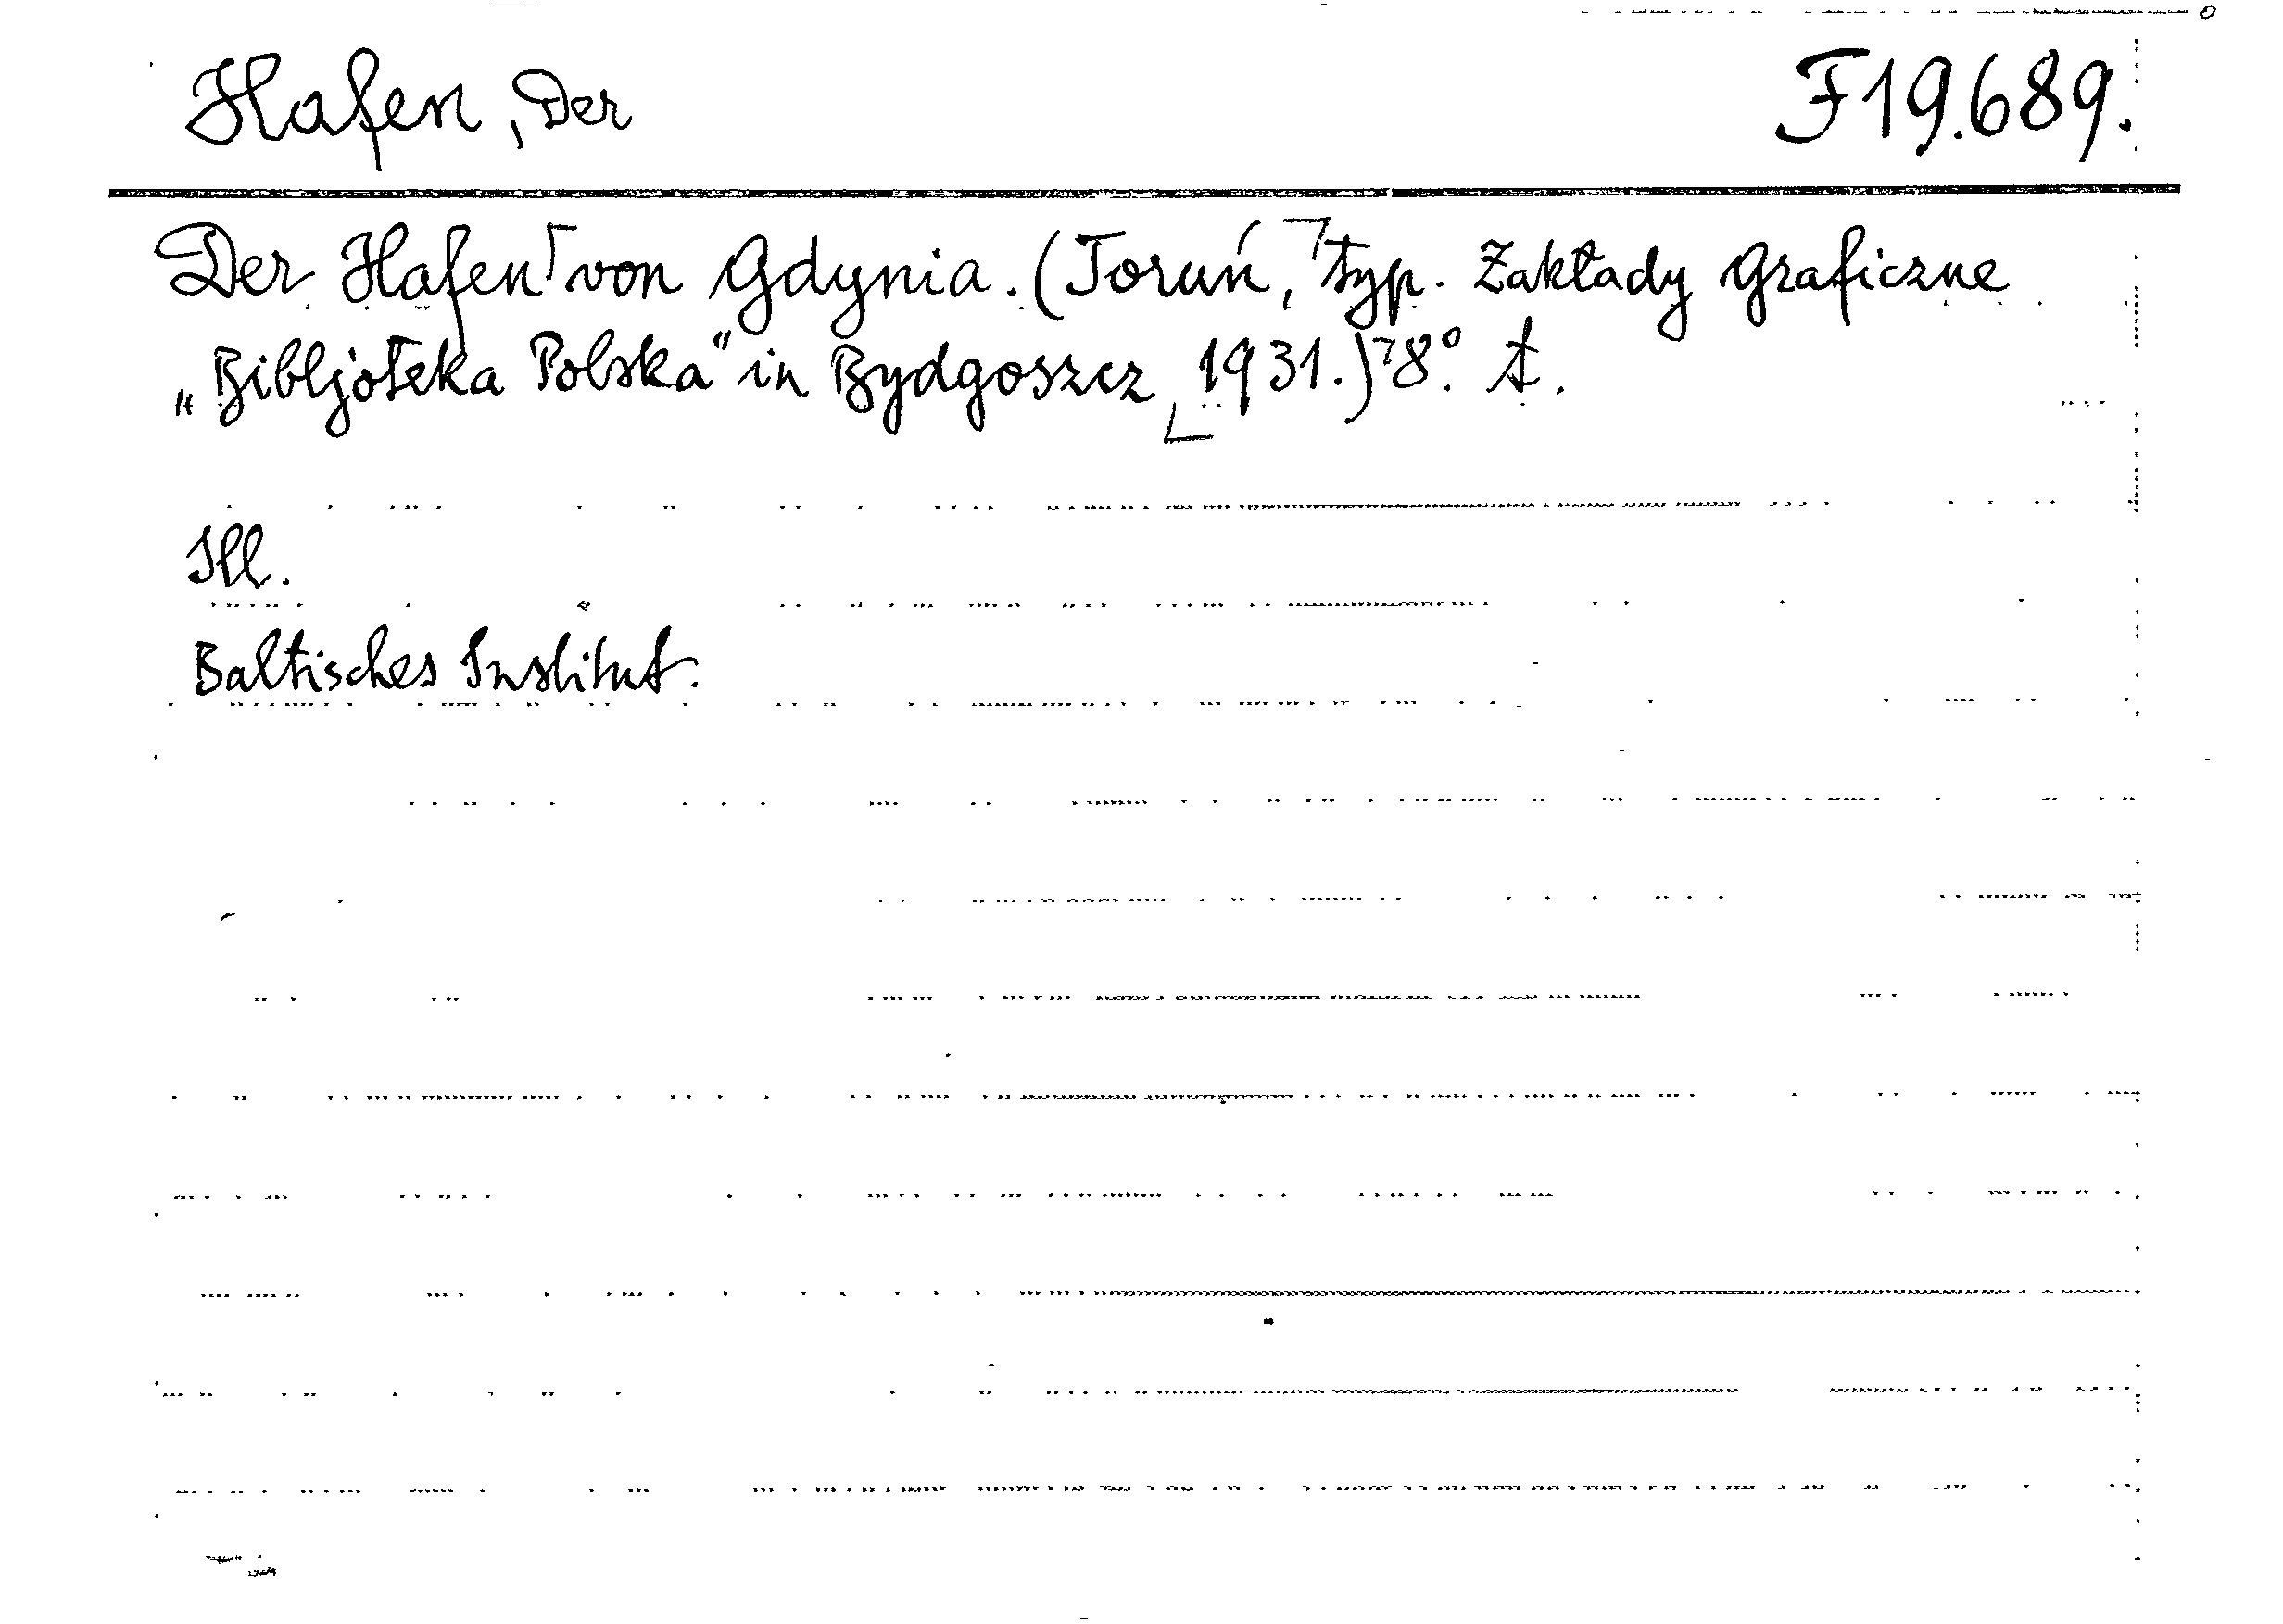 Hafen, Der
F19.689.
Der Hafen von Gdynia. (Toruń, typ. Zakłady Graficzne
„Bibljoteka Polska" in Bydgoszcz 1931.) 8°. t.
Ill.
Baltisches Institut.